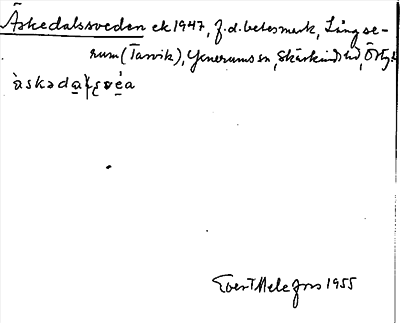 Åskedalssveden ek 1947, f.d. betesmark, Långse-
rum (Tarvik), Yxnerums sn, Skärkinds hd, Östg.
àskəda̱ʃʂve̱̍a
Evert Melefors 1955